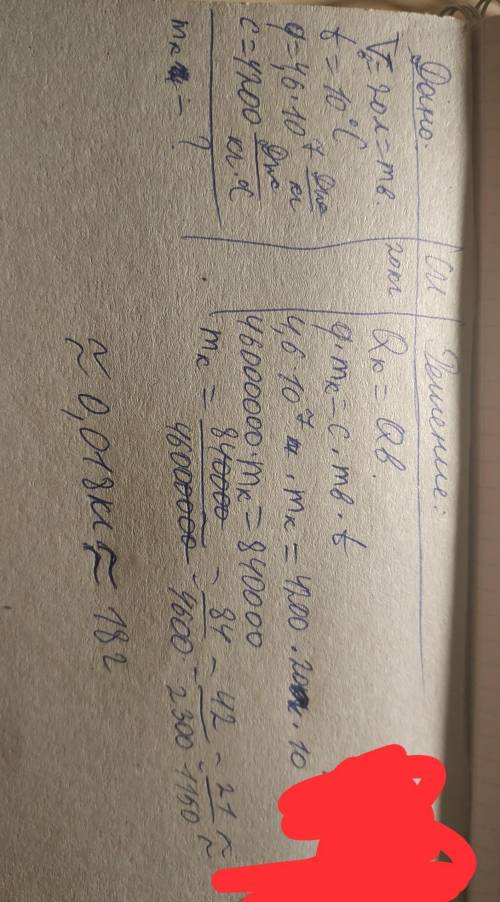 Дано:
V = 20л = mв.
t = 10°C
q = 4,6·10⁷ Дж/кг
c = 4200 Дж/кг·°C
mк = ?
СИ
20кг
Решение:
Qк = Qв
q·mк = c·mв·t
4,6·10⁷ · mк = 4200 · 20 · 10
46000000·mк = 840000
mк = 840000/46000000 = 84/4600 = 42/2300 = 21/1150 ≈
≈ 0,018кг ≈ 18г